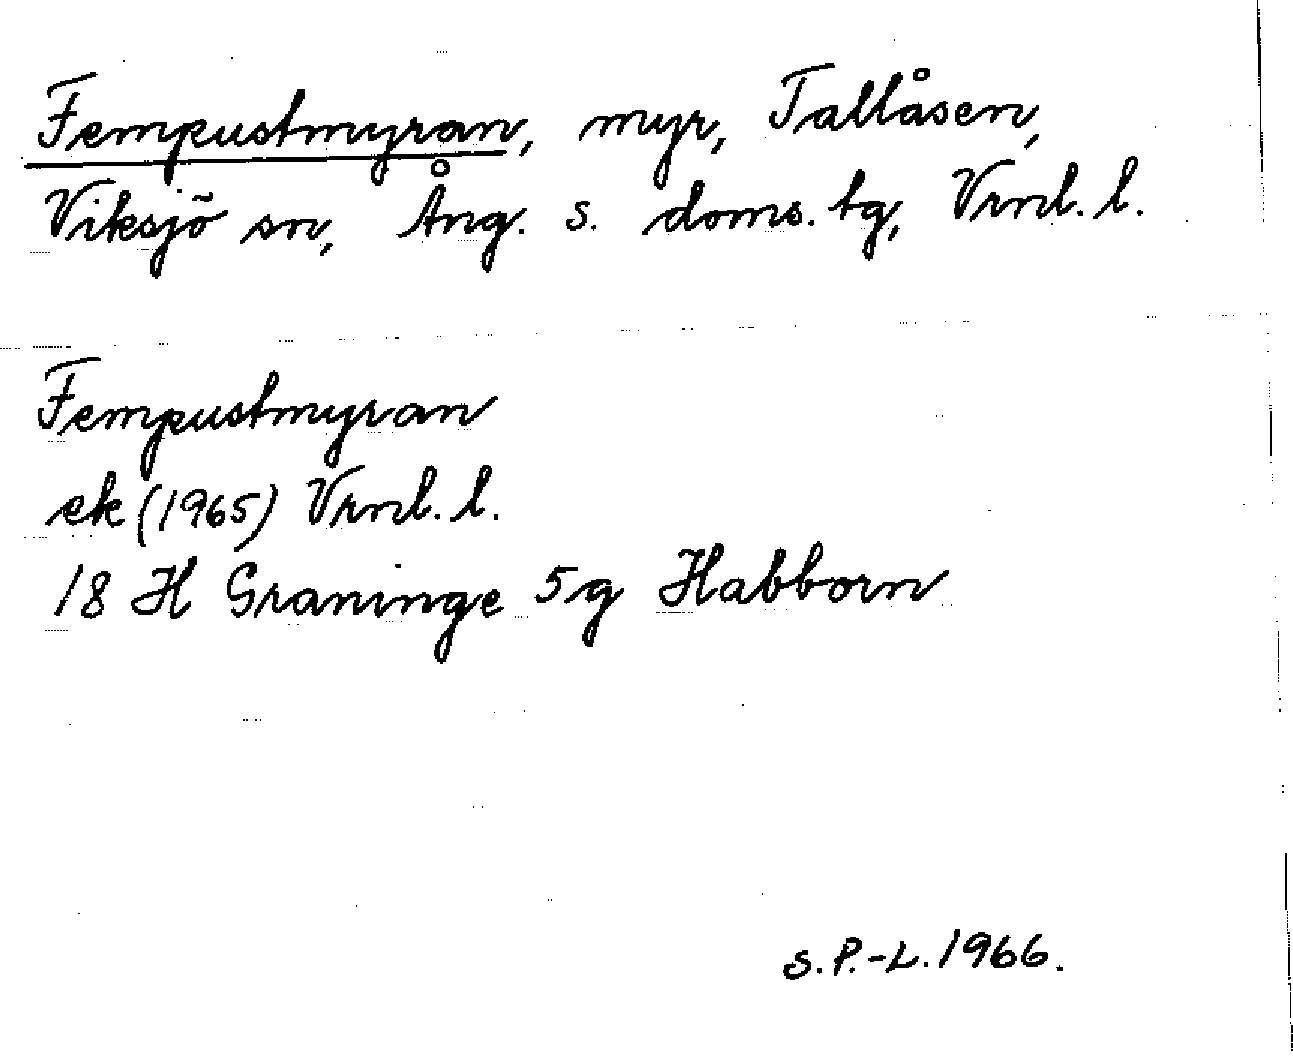 Fempustmyran, myr, Tallåsen,
Viksjö sn, Ång. s. doms. tg, Vrnl. l.
Fempustmyran
ek (1965) Vrnl. l.
18 H Graninge 5g Habborn
S. P.-L. 1966.